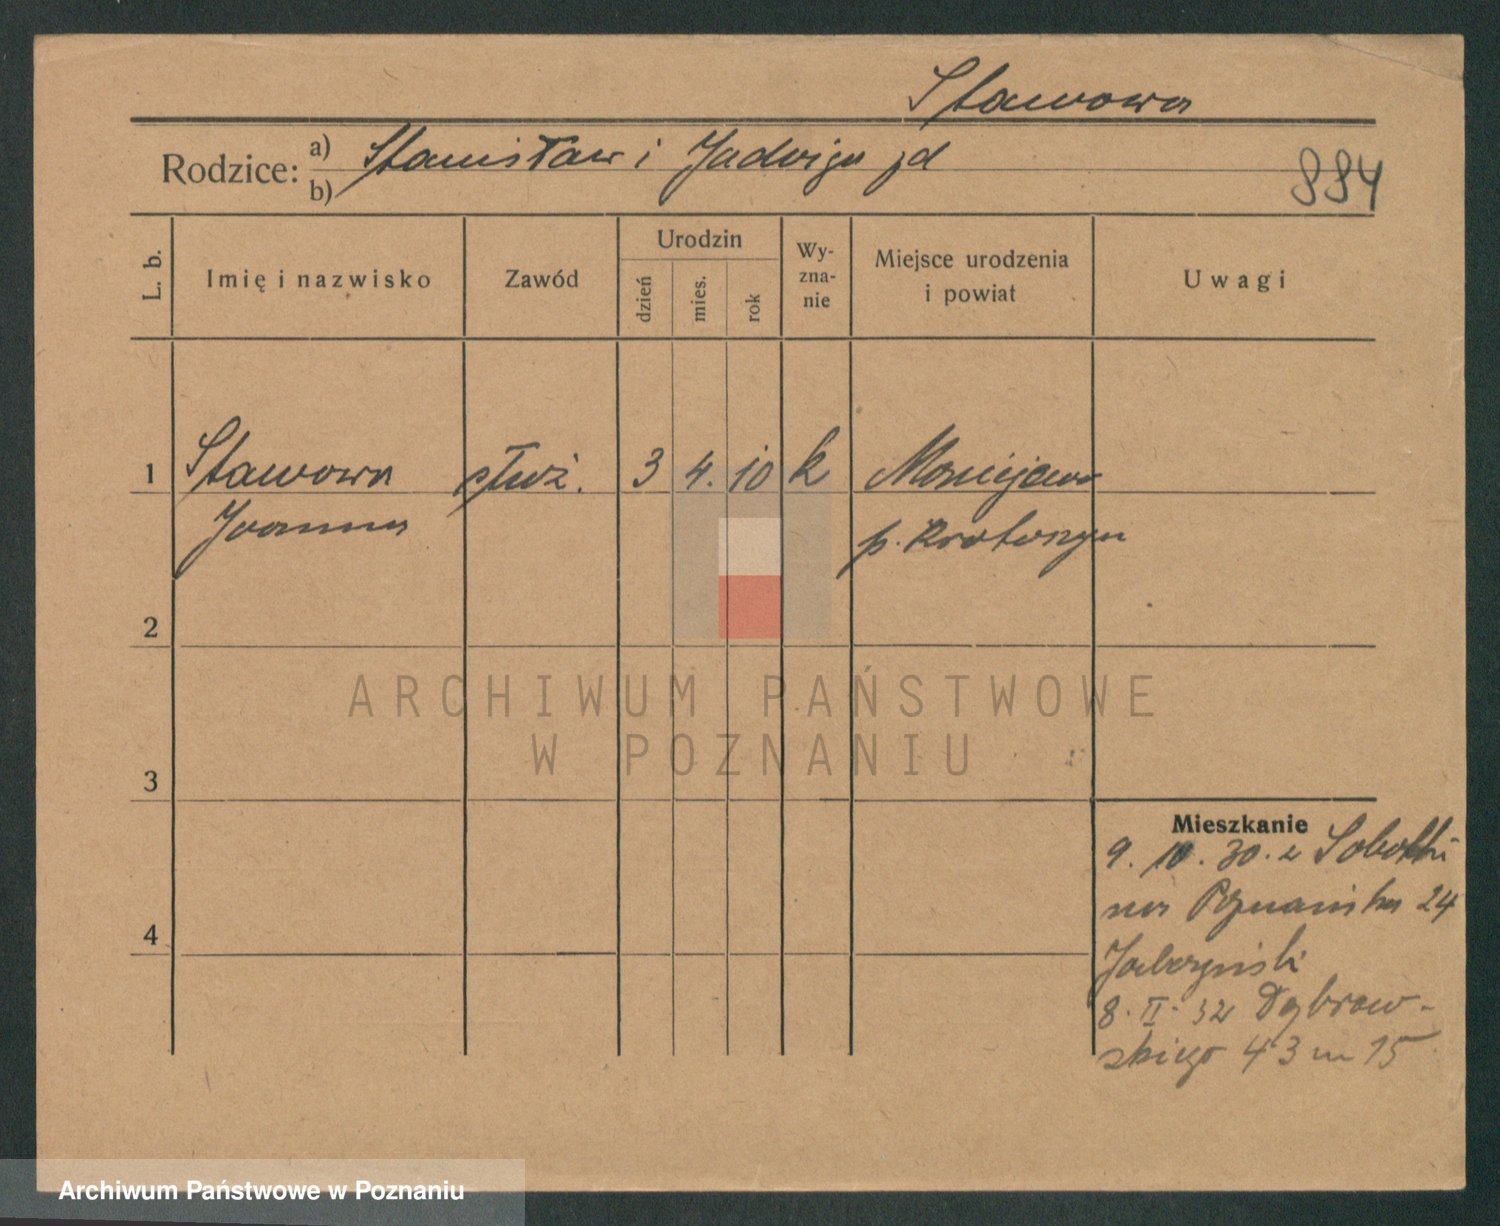 Stawowa
Rodzice: a) Stanisław i Jadwiga jd
b)
884
L. b.
Imię i nazwisko
Zawód
Urodzin
dzień
mies.
rok
Wy-
zna-
nie
Miejsce urodzenia
i powiat
Uwagi
1 Stawowa służ. 3 4. 10 k
Joanna p. Krotoszyn
2
ARCHIWUM PAŃSTWOWE
W POZNANIU
3
Mieszkanie
9. 10. 30. z Sobótki
na Poznańska 24
4
8. II. 32 Dąbrow-
skiego 43 m 15
Archiwum Państwowe w Poznaniu